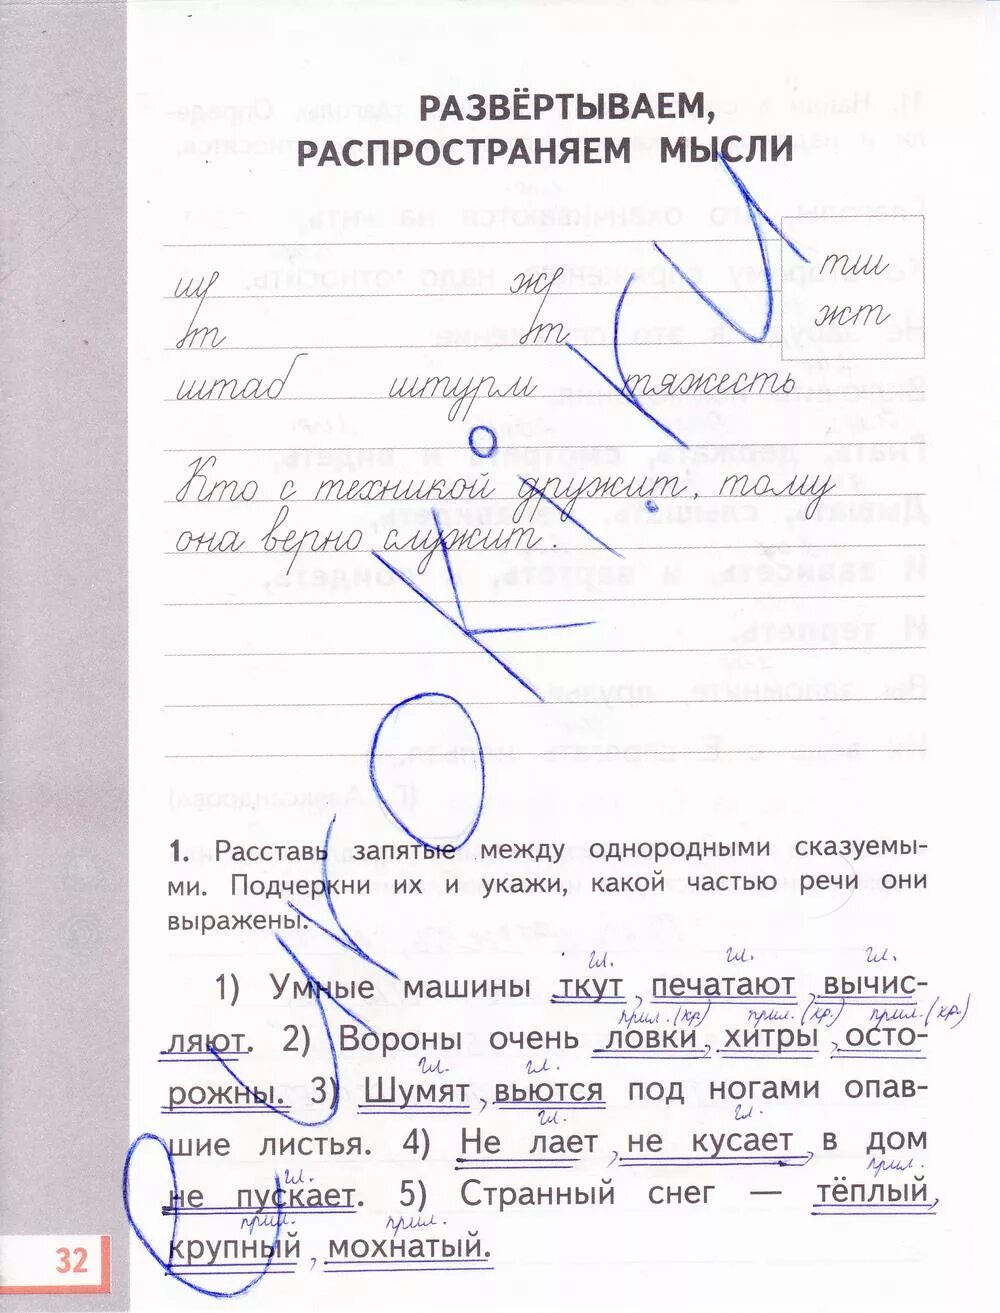 РАЗВЁРТЫВАЕМ,
РАСПРОСТРАНЯЕМ МЫСЛИ
шт жт тш
т т жт
штаб штурм тяжесть
Кто с техникой дружит, тому
она верно служит.
1. Расставь запятые между однородными сказуемы-
ми. Подчеркни их и укажи, какой частью речи они
выражены.
гл. гл. гл.
1) Умные машины ткут, печатают, вычис-
прил.(кр) прил.(кр.) прил.(кр)
ляют. 2) Вороны очень ловки, хитры, осто-
гл. гл.
рожны. 3) Шумят, вьются под ногами опав-
гл. гл.
шие листья. 4) Не лает, не кусает, в дом
гл. прил.
не пускает. 5) Странный снег — тёплый,
прил. прил.
крупный, мохнатый.
32